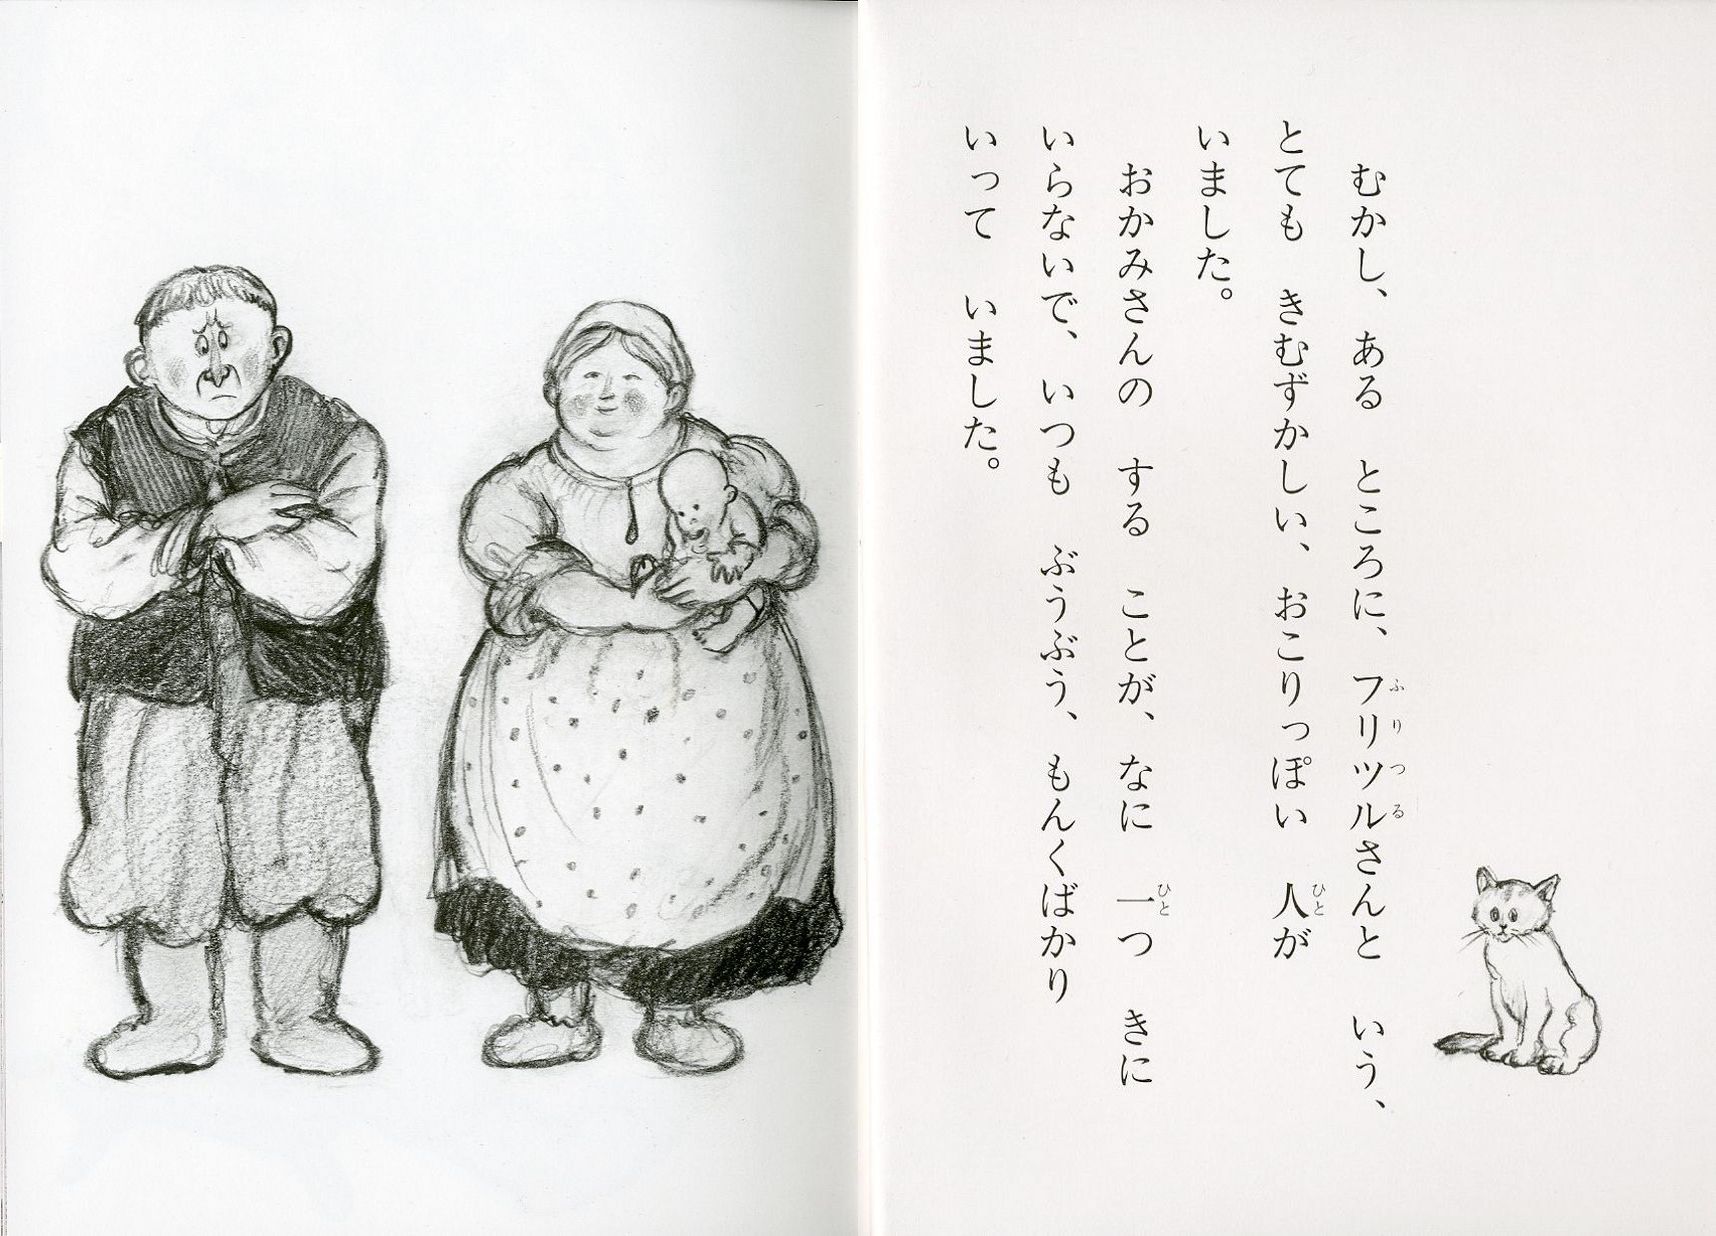 むかし、ある　ところに、フリツルさんと　いう、
とても　きむずかしい、おこりっぽい　人が
いました。
おかみさんの　する　ことが、なに　一つ　きに
いらないで、いつも　ぶうぶう、もんくばかり
いって　いました。